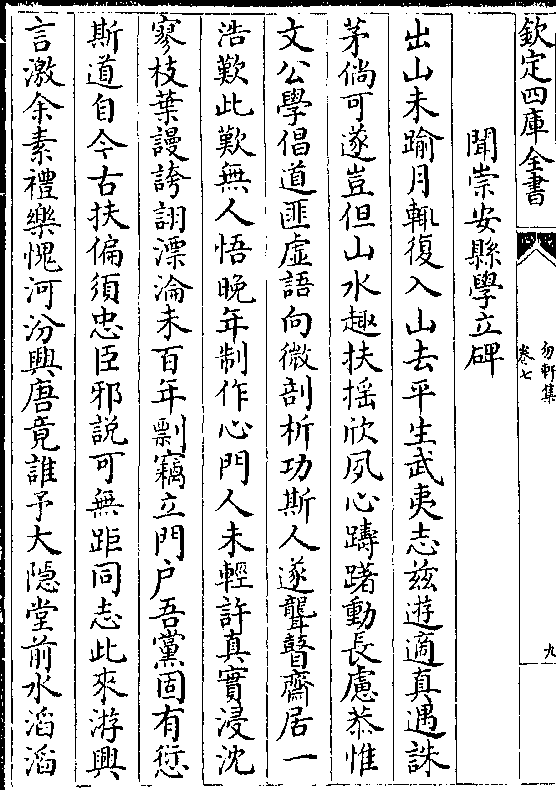 欽定四庫全書
勿軒集
卷七
九
聞崇安縣學立碑
出山未踰月輒復入山去平生武夷志兹遊適真遇誅
茅倘可遂豈但山水趣扶揺欣夙心躊躇動長慮恭惟
文公學倡道匪虚語向微剖析功斯人遂聾瞽齋居一
浩歎此歎無人悟晚年制作心門人未輕許真實浸沈
寥枝葉謾誇詡漂淪未百年剽竊立門户吾黨固有愆
斯道自今古扶偏須忠臣邪説可無距同志此來游興
言激余素禮樂愧河汾興唐竟誰予大隠堂前水滔滔